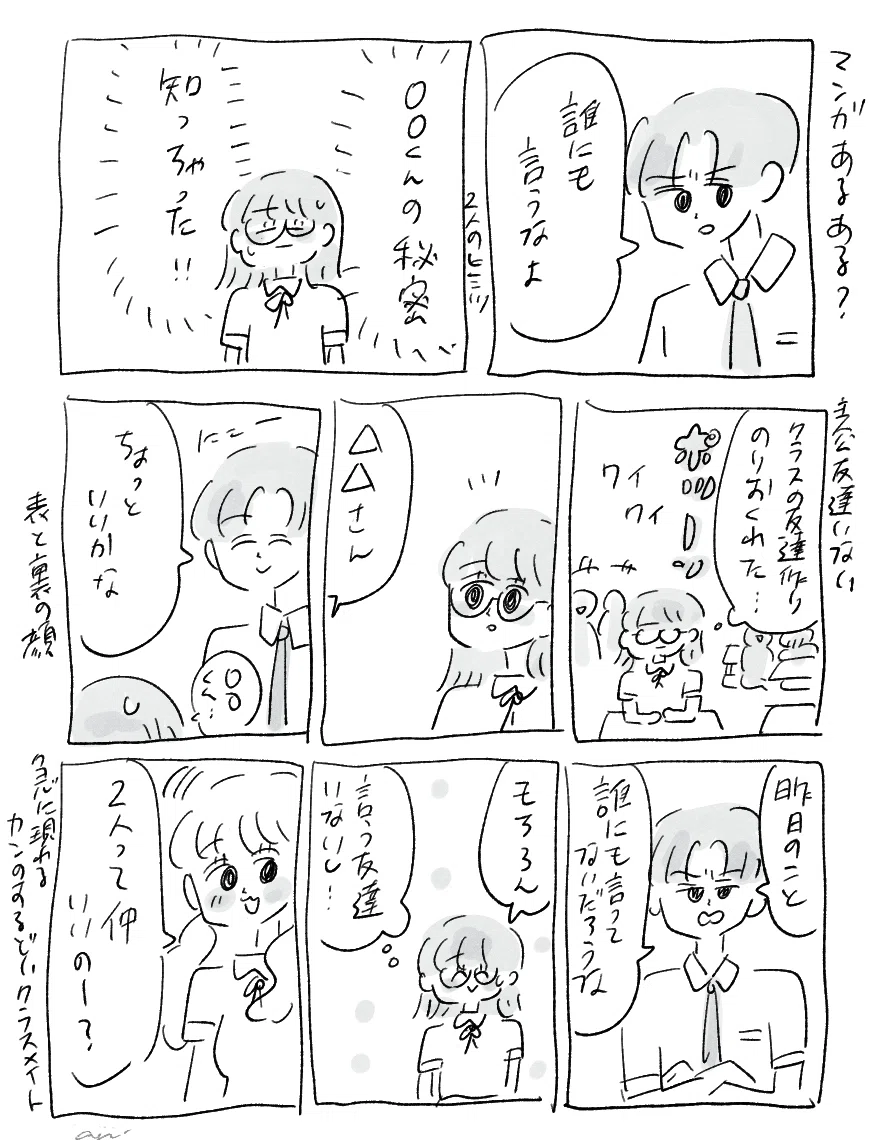 マンガあるある?
誰にも
言うなよ
2人のヒミツ
〇〇くんの秘密
知っちゃった!!
主人公友達いない
クラスの友達作り
のりおくれた…
ポツーン
ワイ
ワイ
△△さん
にこー
ちょっと
いいかな
〇〇
くん…
表と裏の顔
昨日のこと
誰にも言って
ないだろうな
もちろん
言う友達
いないし…
2人って仲
いいのー?
急に現れる
カンのするどいクラスメイト